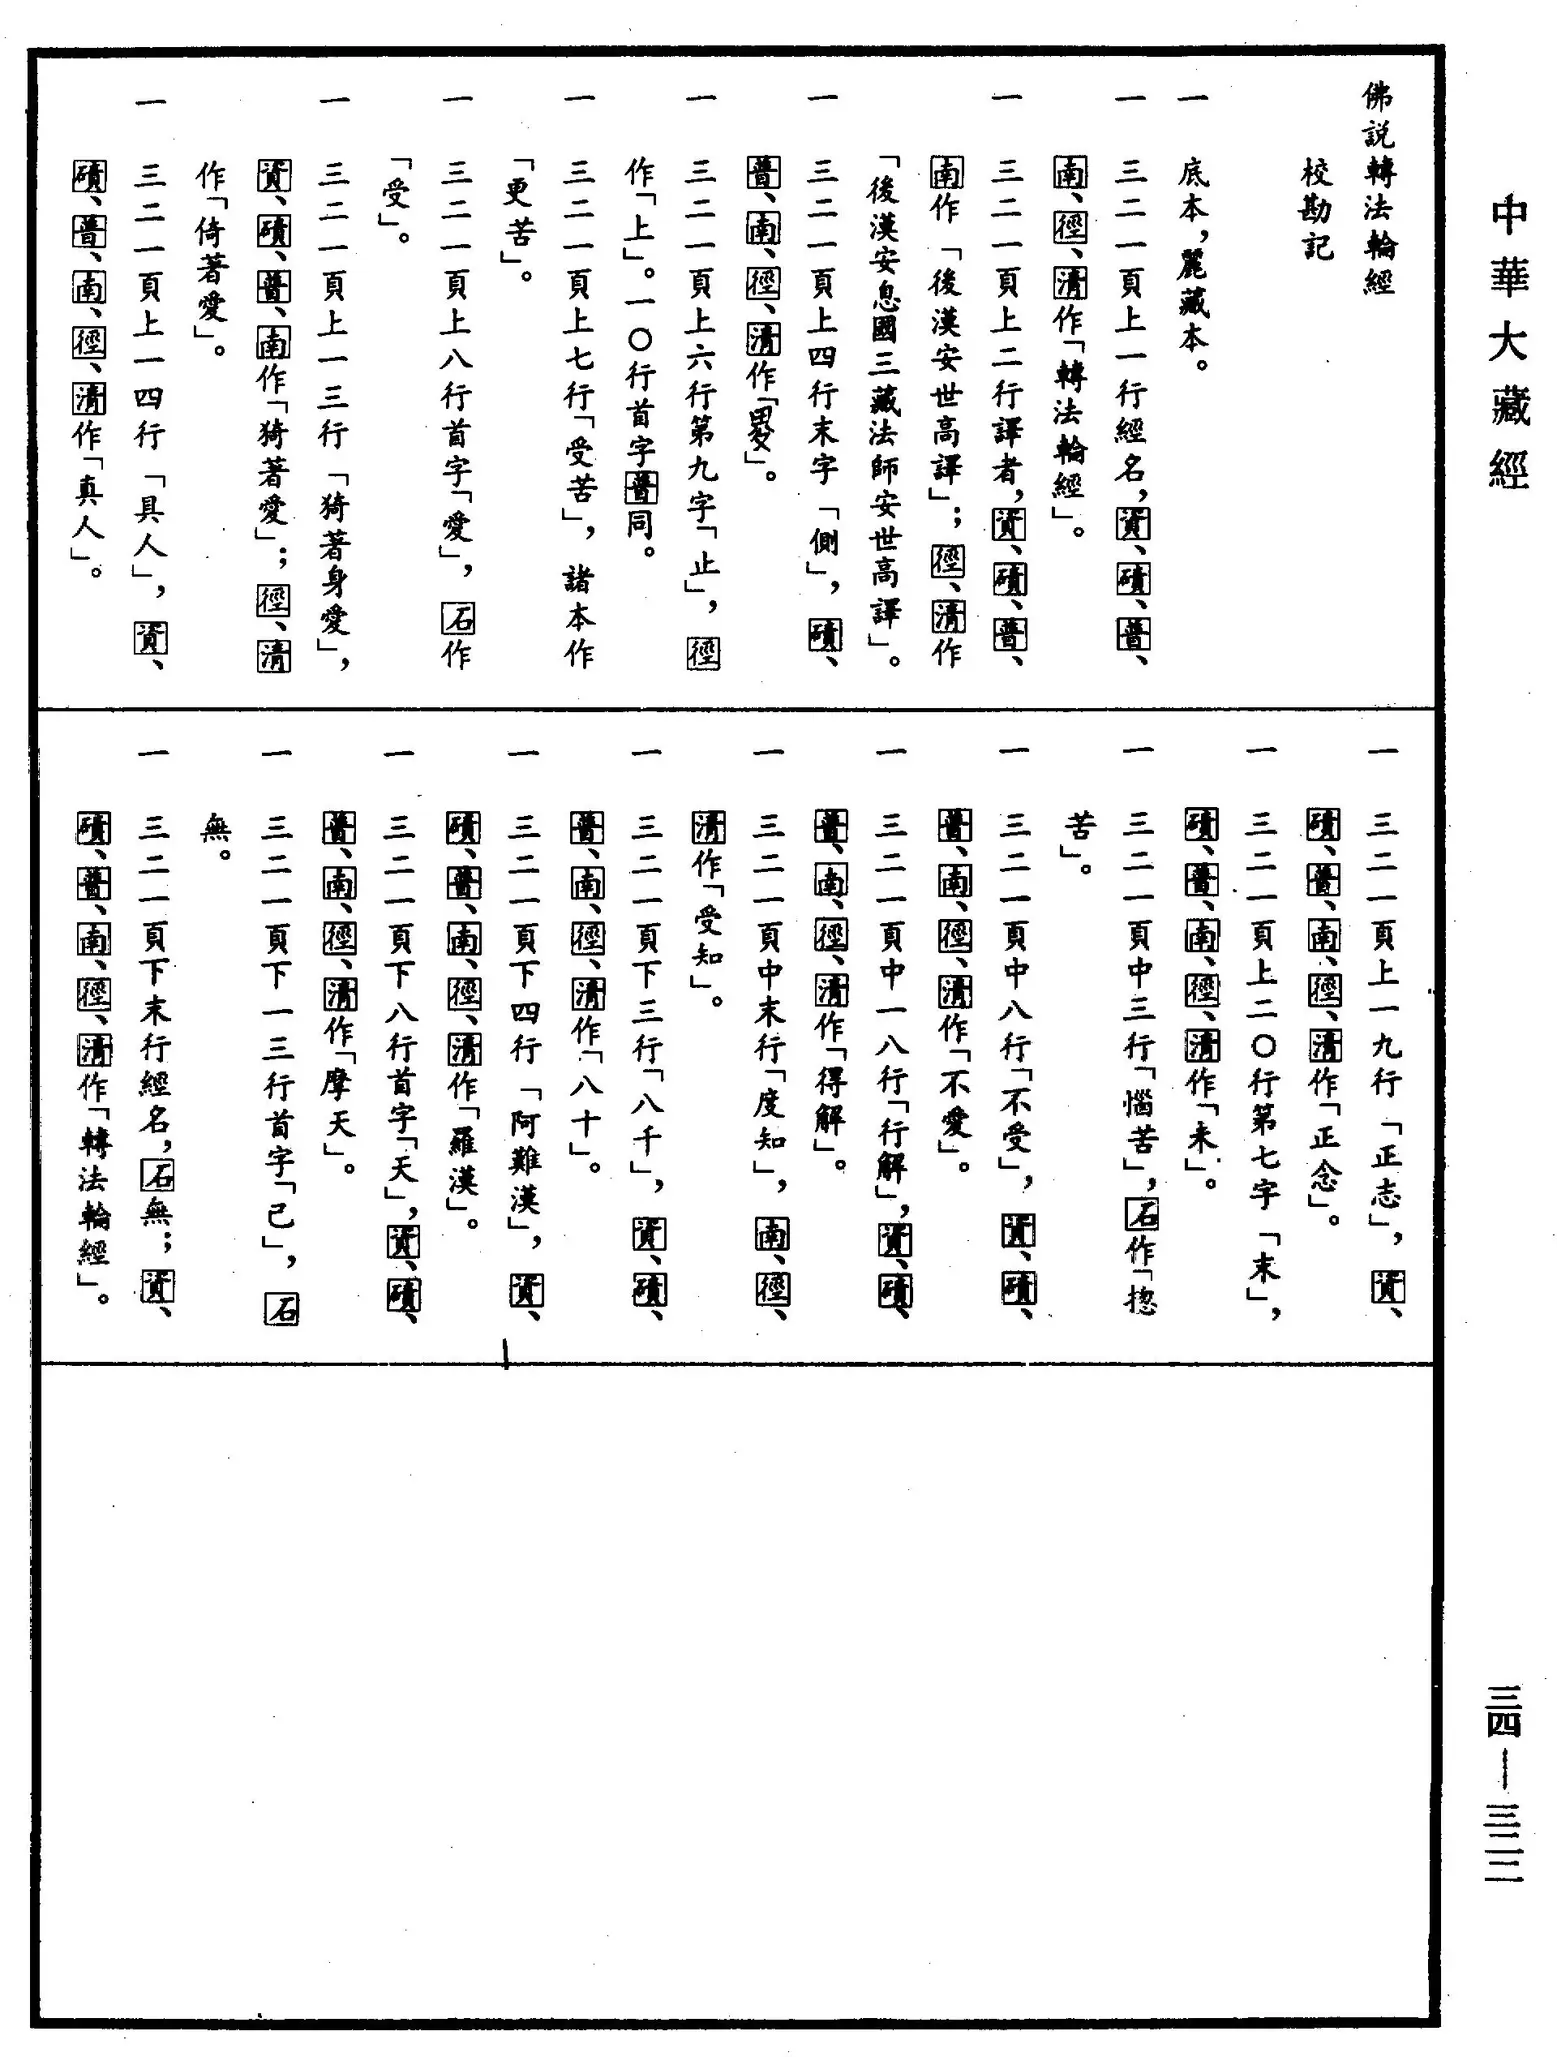 中華大藏經
佛說轉法輪經
校勘記
一 底本，麗藏本。
一 三二一頁上一行經名，資、磧、普、
南、徑、清作「轉法輪經」。
一 三二一頁上二行譯者，資、磧、普、
南作「後漢安世高譯」；徑、清作
「後漢安息國三藏法師安世高譯」。
一 三二一頁上四行末字「側」，磧、
普、南、徑、清作「畟」。
一 三二一頁上六行第九字「止」，徑
作「上」。一〇行首字普同。
一 三二一頁上七行「受苦」，諸本作
「更苦」。
一 三二一頁上八行首字「愛」，石作
「受」。
一 三二一頁上一三行「猗著身愛」，
資、磧、普、南作「猗著愛」；徑、清
作「倚著愛」。
一 三二一頁上一四行「具人」，資、
磧、普、南、徑、清作「真人」。
一 三二一頁上一九行「正志」，資、
磧、普、南、徑、清作「正念」。
一 三二一頁上二〇行第七字「末」，
磧、普、南、徑、清作「未」。
一 三二一頁中三行「惱苦」，石作「揔
苦」。
一 三二一頁中八行「不受」，資、磧、
普、南、徑、清作「不愛」。
一 三二一頁中一八行「行解」，資、磧、
普、南、徑、清作「得解」。
一 三二一頁中末行「度知」，南、徑、
清作「受知」。
一 三二一頁下三行「八千」，資、磧、
普、南、徑、清作「八十」。
一 三二一頁下四行「阿難漢」，資、
磧、普、南、徑、清作「羅漢」。
一 三二一頁下八行首字「天」，資、磧、
普、南、徑、清作「摩天」。
一 三二一頁下一三行首字「己」，石
無。
一 三二一頁下末行經名，石無；資、
磧、普、南、徑、清作「轉法輪經」。
三四—三二二